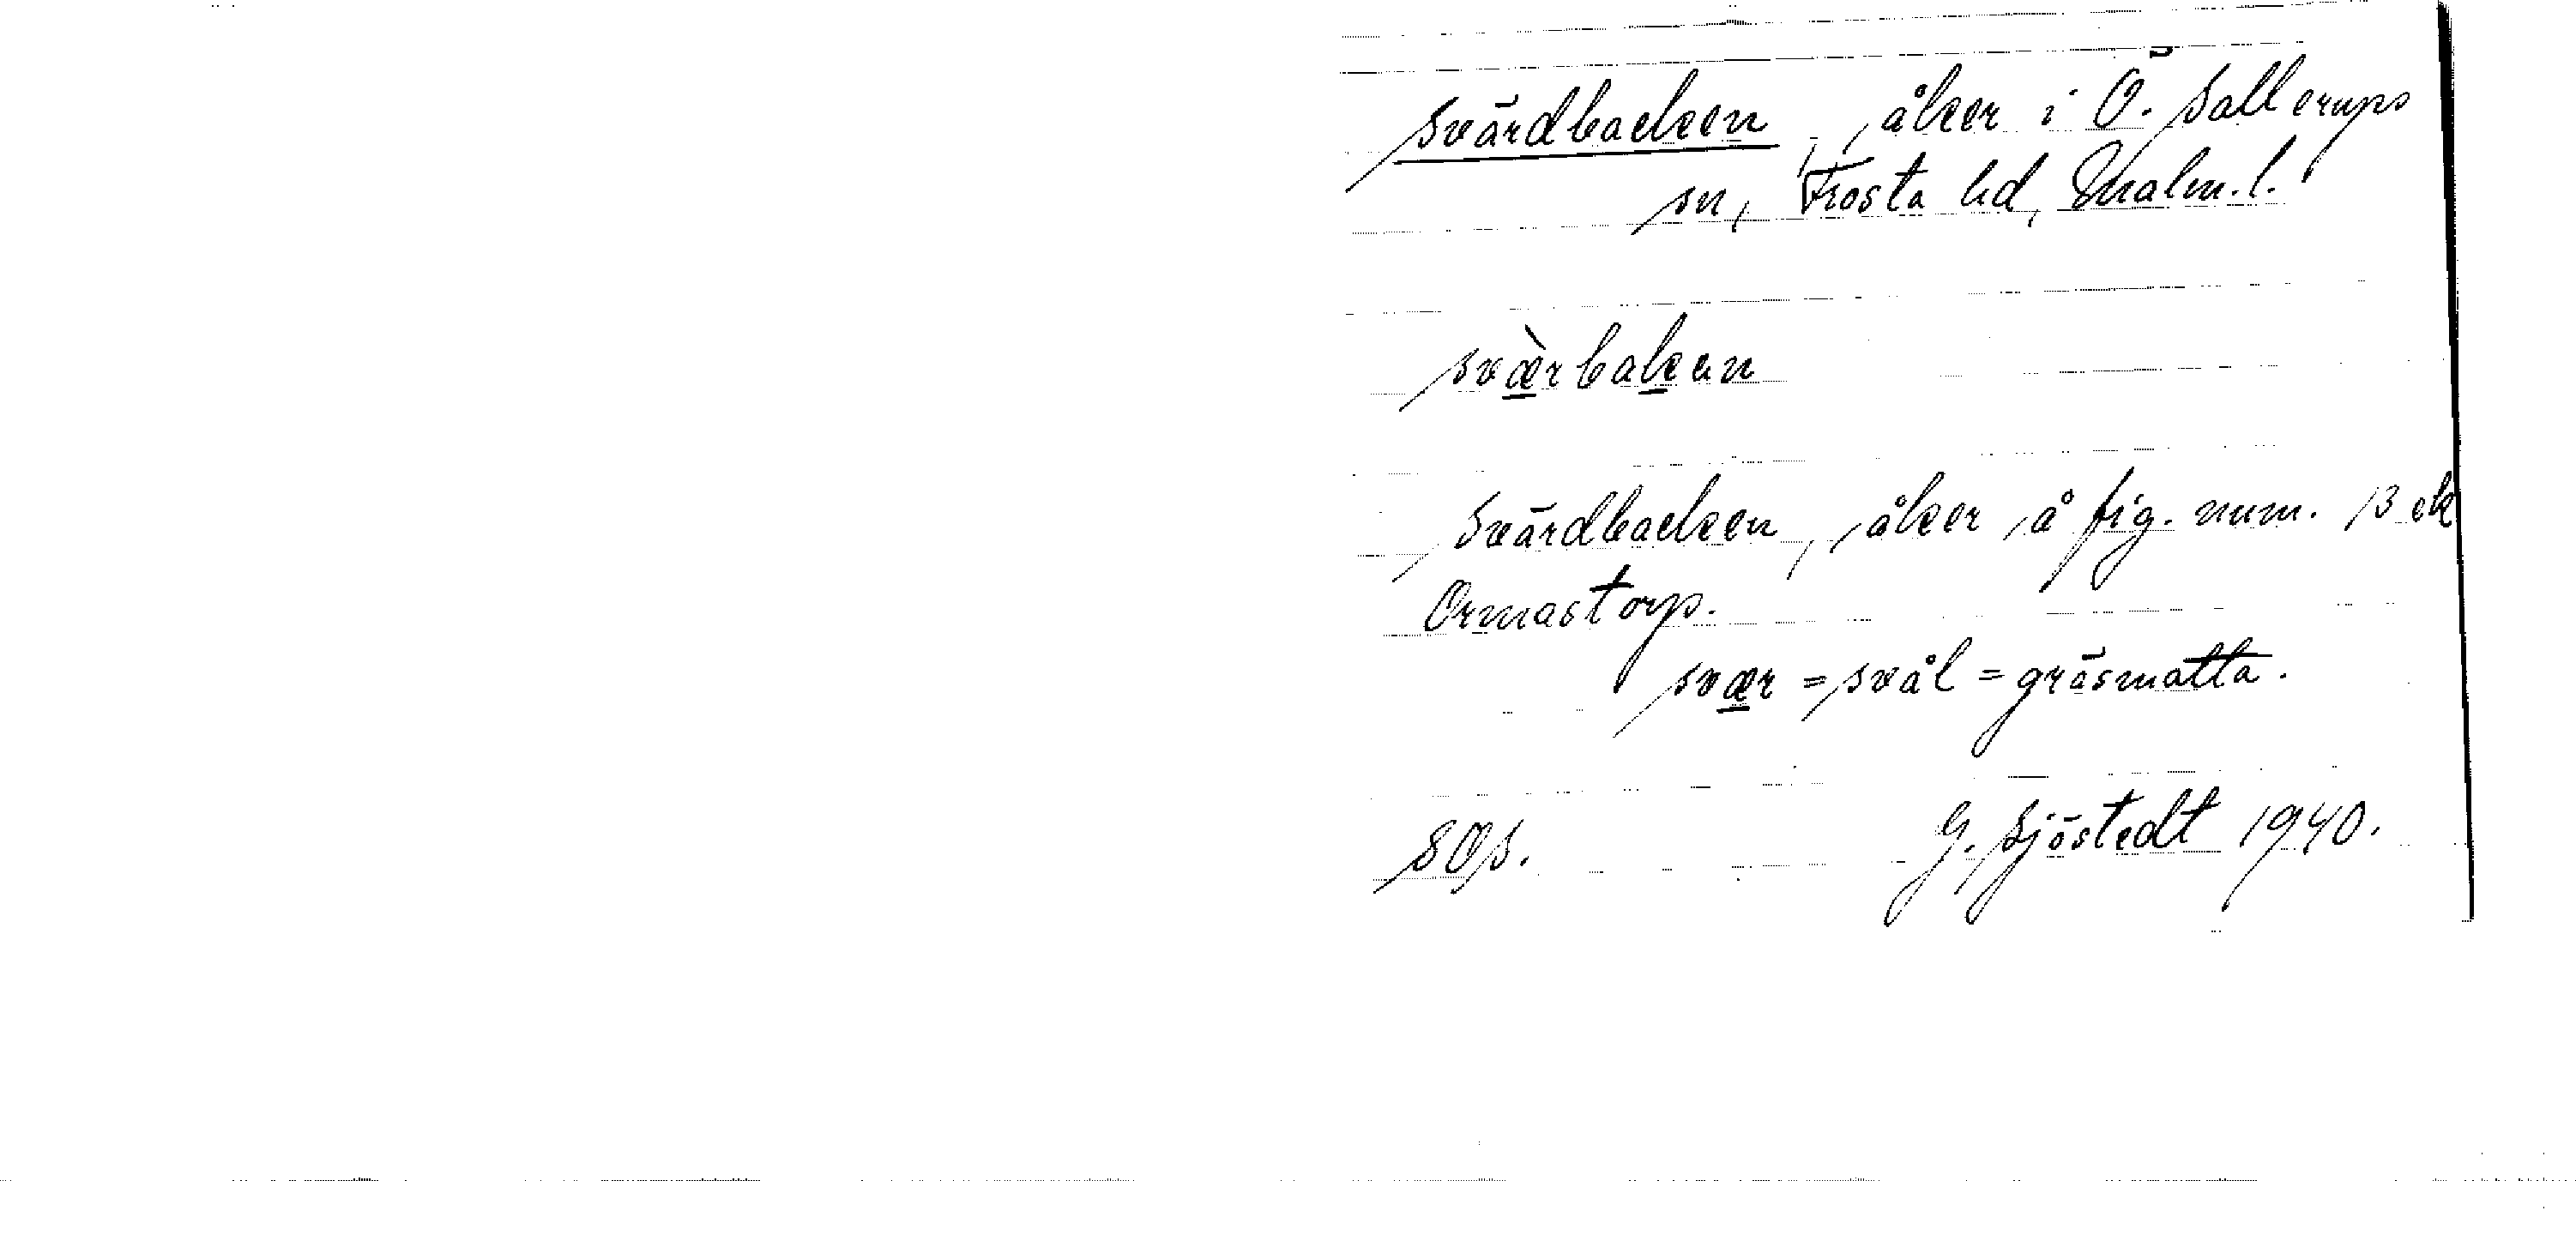 Svärdbacken, åker i Ö. Sallerups
sn, Frosta hd, Malm. l.
svæ̀rbakan
Svärdbacken, åker å fig. num. 13 ek
Ormastorp.
svær = svål = gräsmatta.
SOS. G. Sjöstedt 1940.